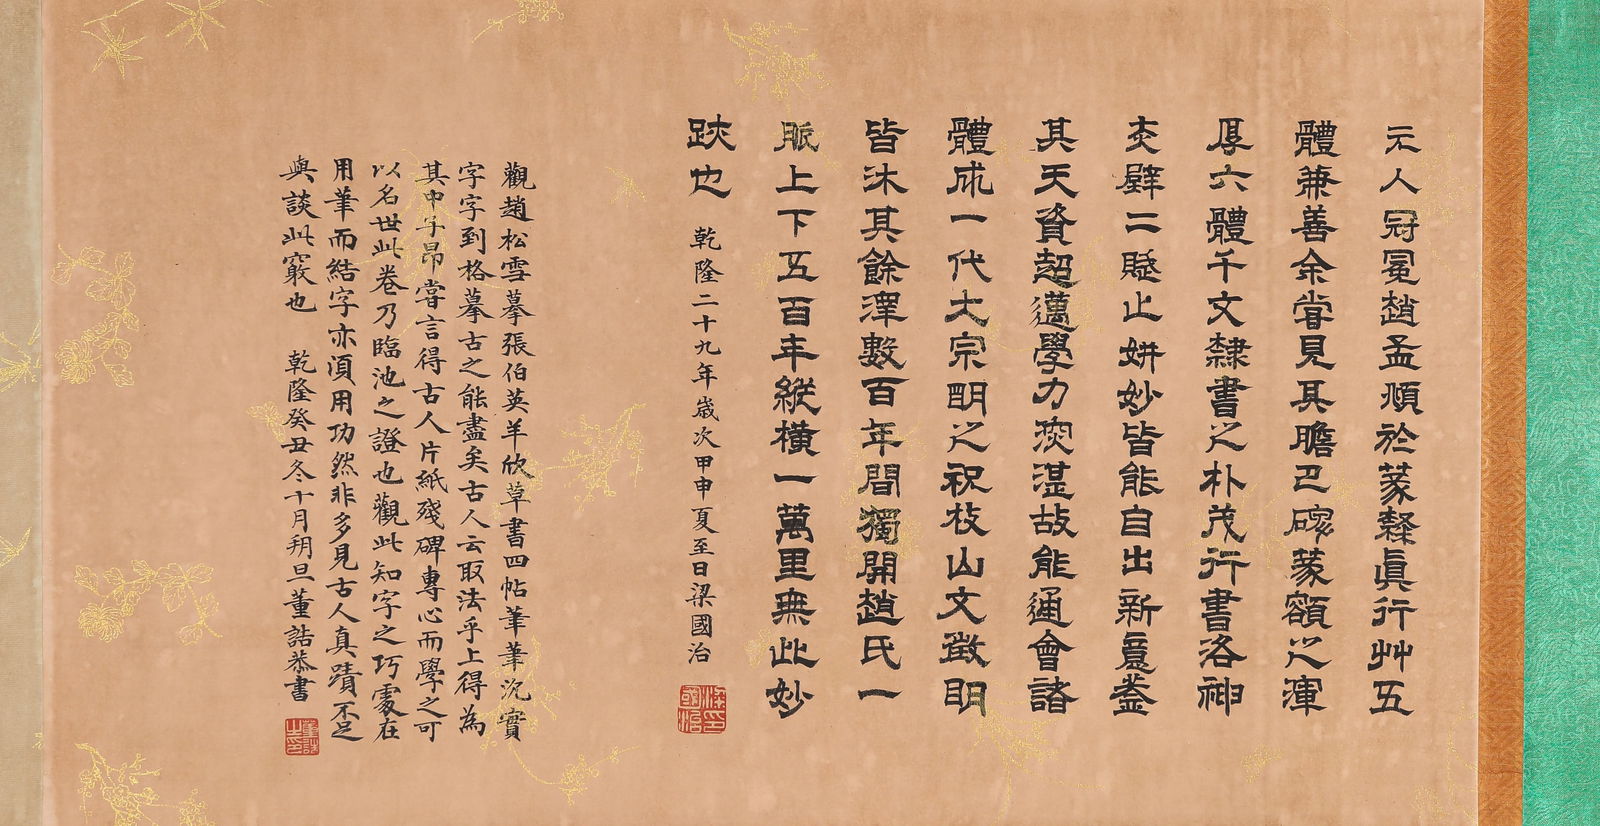 元人冠冕趙孟頫於篆隸真行艸五
體兼善余嘗見其瞻巴碑篆額之渾
厚六體千文隸書之朴茂行書洛神
赤壁二賦止姸妙皆能自出新意葢
其天資超邁學力深湛故能通會諸
體成一代大宗明之祝枝山文徵明
皆沐其餘澤數百年間獨開趙氏一
脈上下五百年縱橫一萬里無此妙
跡也 乾隆二十九年歲次甲申夏至日梁國治
觀趙松雪摹張伯英羊欣草書四帖筆筆沉實
字字到格摹古之能盡矣古人云取法乎上得為
其中子昂嘗言得古人片紙殘碑專心而學之可
以名世此卷乃臨池之證也觀此知字之巧處在
用筆而結字亦須用功然非多見古人真蹟不足
與談此竅也 乾隆癸丑冬十月朔旦董誥恭書